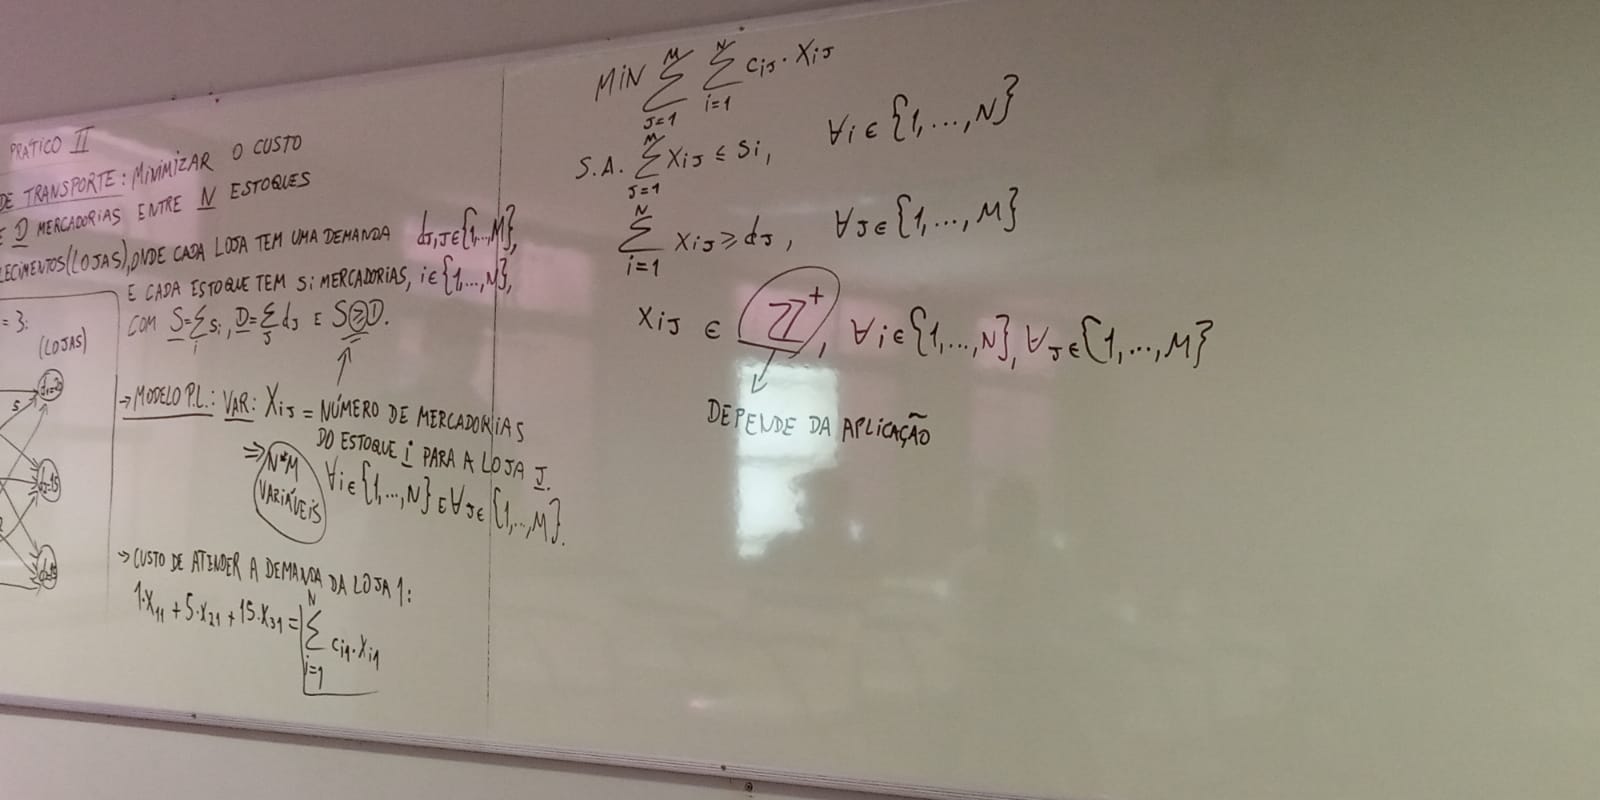 PRÁTICO II
DE TRANSPORTE: MINIMIZAR O CUSTO
E D MERCADORIAS ENTRE N ESTOQUES
LECIMENTOS (LOJAS), ONDE CADA LOJA TEM UMA DEMANDA dJ, J∈{1,...,M},
E CADA ESTOQUE TEM Si MERCADORIAS, i∈{1,...,N},
COM S=∑i si, D=∑J dJ E S≥D.
= 3:
(LOJAS)
5
→ MODELO P.L.: VAR: XiJ = NÚMERO DE MERCADORIAS
DO ESTOQUE i PARA A LOJA J.
⇒ N*M VARIÁVEIS
∀i∈{1,...,N} E ∀J∈{1,...,M}.
→ CUSTO DE ATENDER A DEMANDA DA LOJA 1:
1·X11 + 5·X21 + 15·X31 = ∑_{i=1}^{N} ci1·Xi1
MIN ∑_{J=1}^{M} ∑_{i=1}^{N} ciJ·XiJ
S.A. ∑_{J=1}^{M} XiJ ≤ Si, ∀i∈{1,...,N}
∑_{i=1}^{N} XiJ ≥ dJ, ∀J∈{1,...,M}
XiJ ∈ ℤ+, ∀i∈{1,...,N}, ∀J∈{1,...,M}
DEPENDE DA APLICAÇÃO